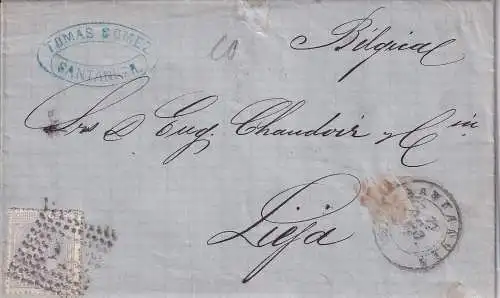 TOMAS GOMEZ
SANTANDER
CO
Bélgica
Srs D Eug. Chaudoir y Cia
Lieja
SANTANDER